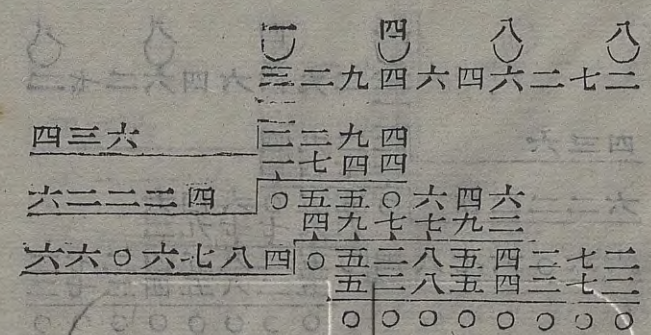 一四八八
三二九四六四六二七二
一
四三六 二二九四
一七四四
六二二二四 ○五五○六四六
四九七七九二
六六○六七八四 ○五二八五四二七二
五二八五四二七二
○○○○○○○○